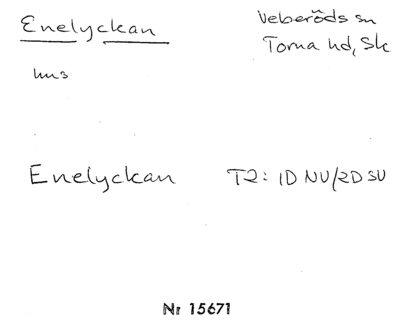 Enelyckan
Veberöds sn
Torna hd, Sk
hus
Enelyckan
T2: 1D NV/2D SV
Nr 15671